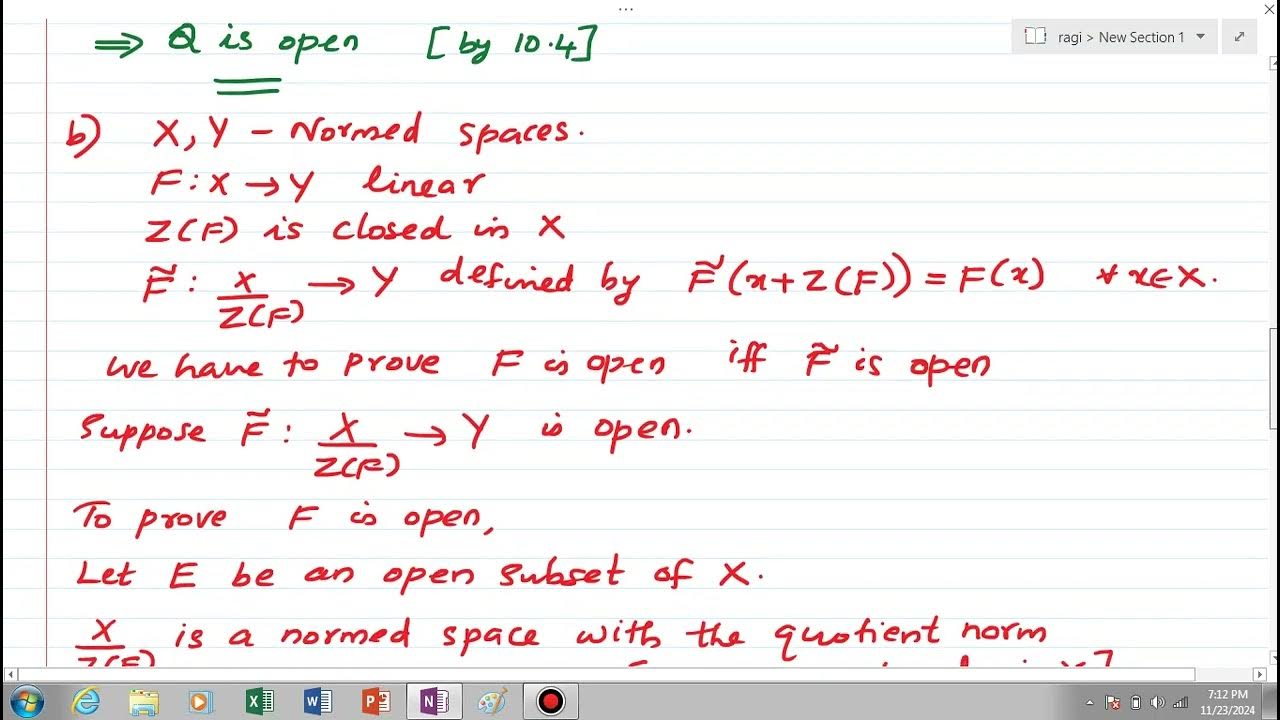 ...
ragi > New Section 1
⟹ Q is open [by 10.4]
b) X, Y - Normed spaces.
F : X → Y linear
Z(F) is closed in X
F̃ : X/Z(F) → Y defined by F̃(x+Z(F)) = F(x) ∀ x∈X.
We have to prove F is open iff F̃ is open
Suppose F̃ : X/Z(F) → Y is open.
To prove F is open,
Let E be an open subset of X.
X/Z(F) is a normed space with the quotient norm
7:12 PM
11/23/2024